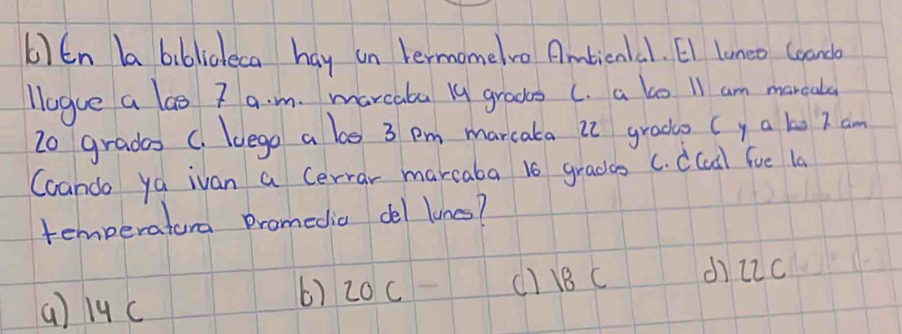 b) En la biblioteca hay un termometro Ambiental. El lunes Coando
llogue a las 7 a.m. marcaba 14 grados C. a las 11 am marcaba
20 grados C. luego a las 3 pm marcaba 22 grados C y a las 7 am
Coando ya ivan a Cerrar marcaba 16 grados C. ¿Cual fue la
temperatura Promedio del lunes?
a) 14 C b) 20 C c) 18 C d) 22 C